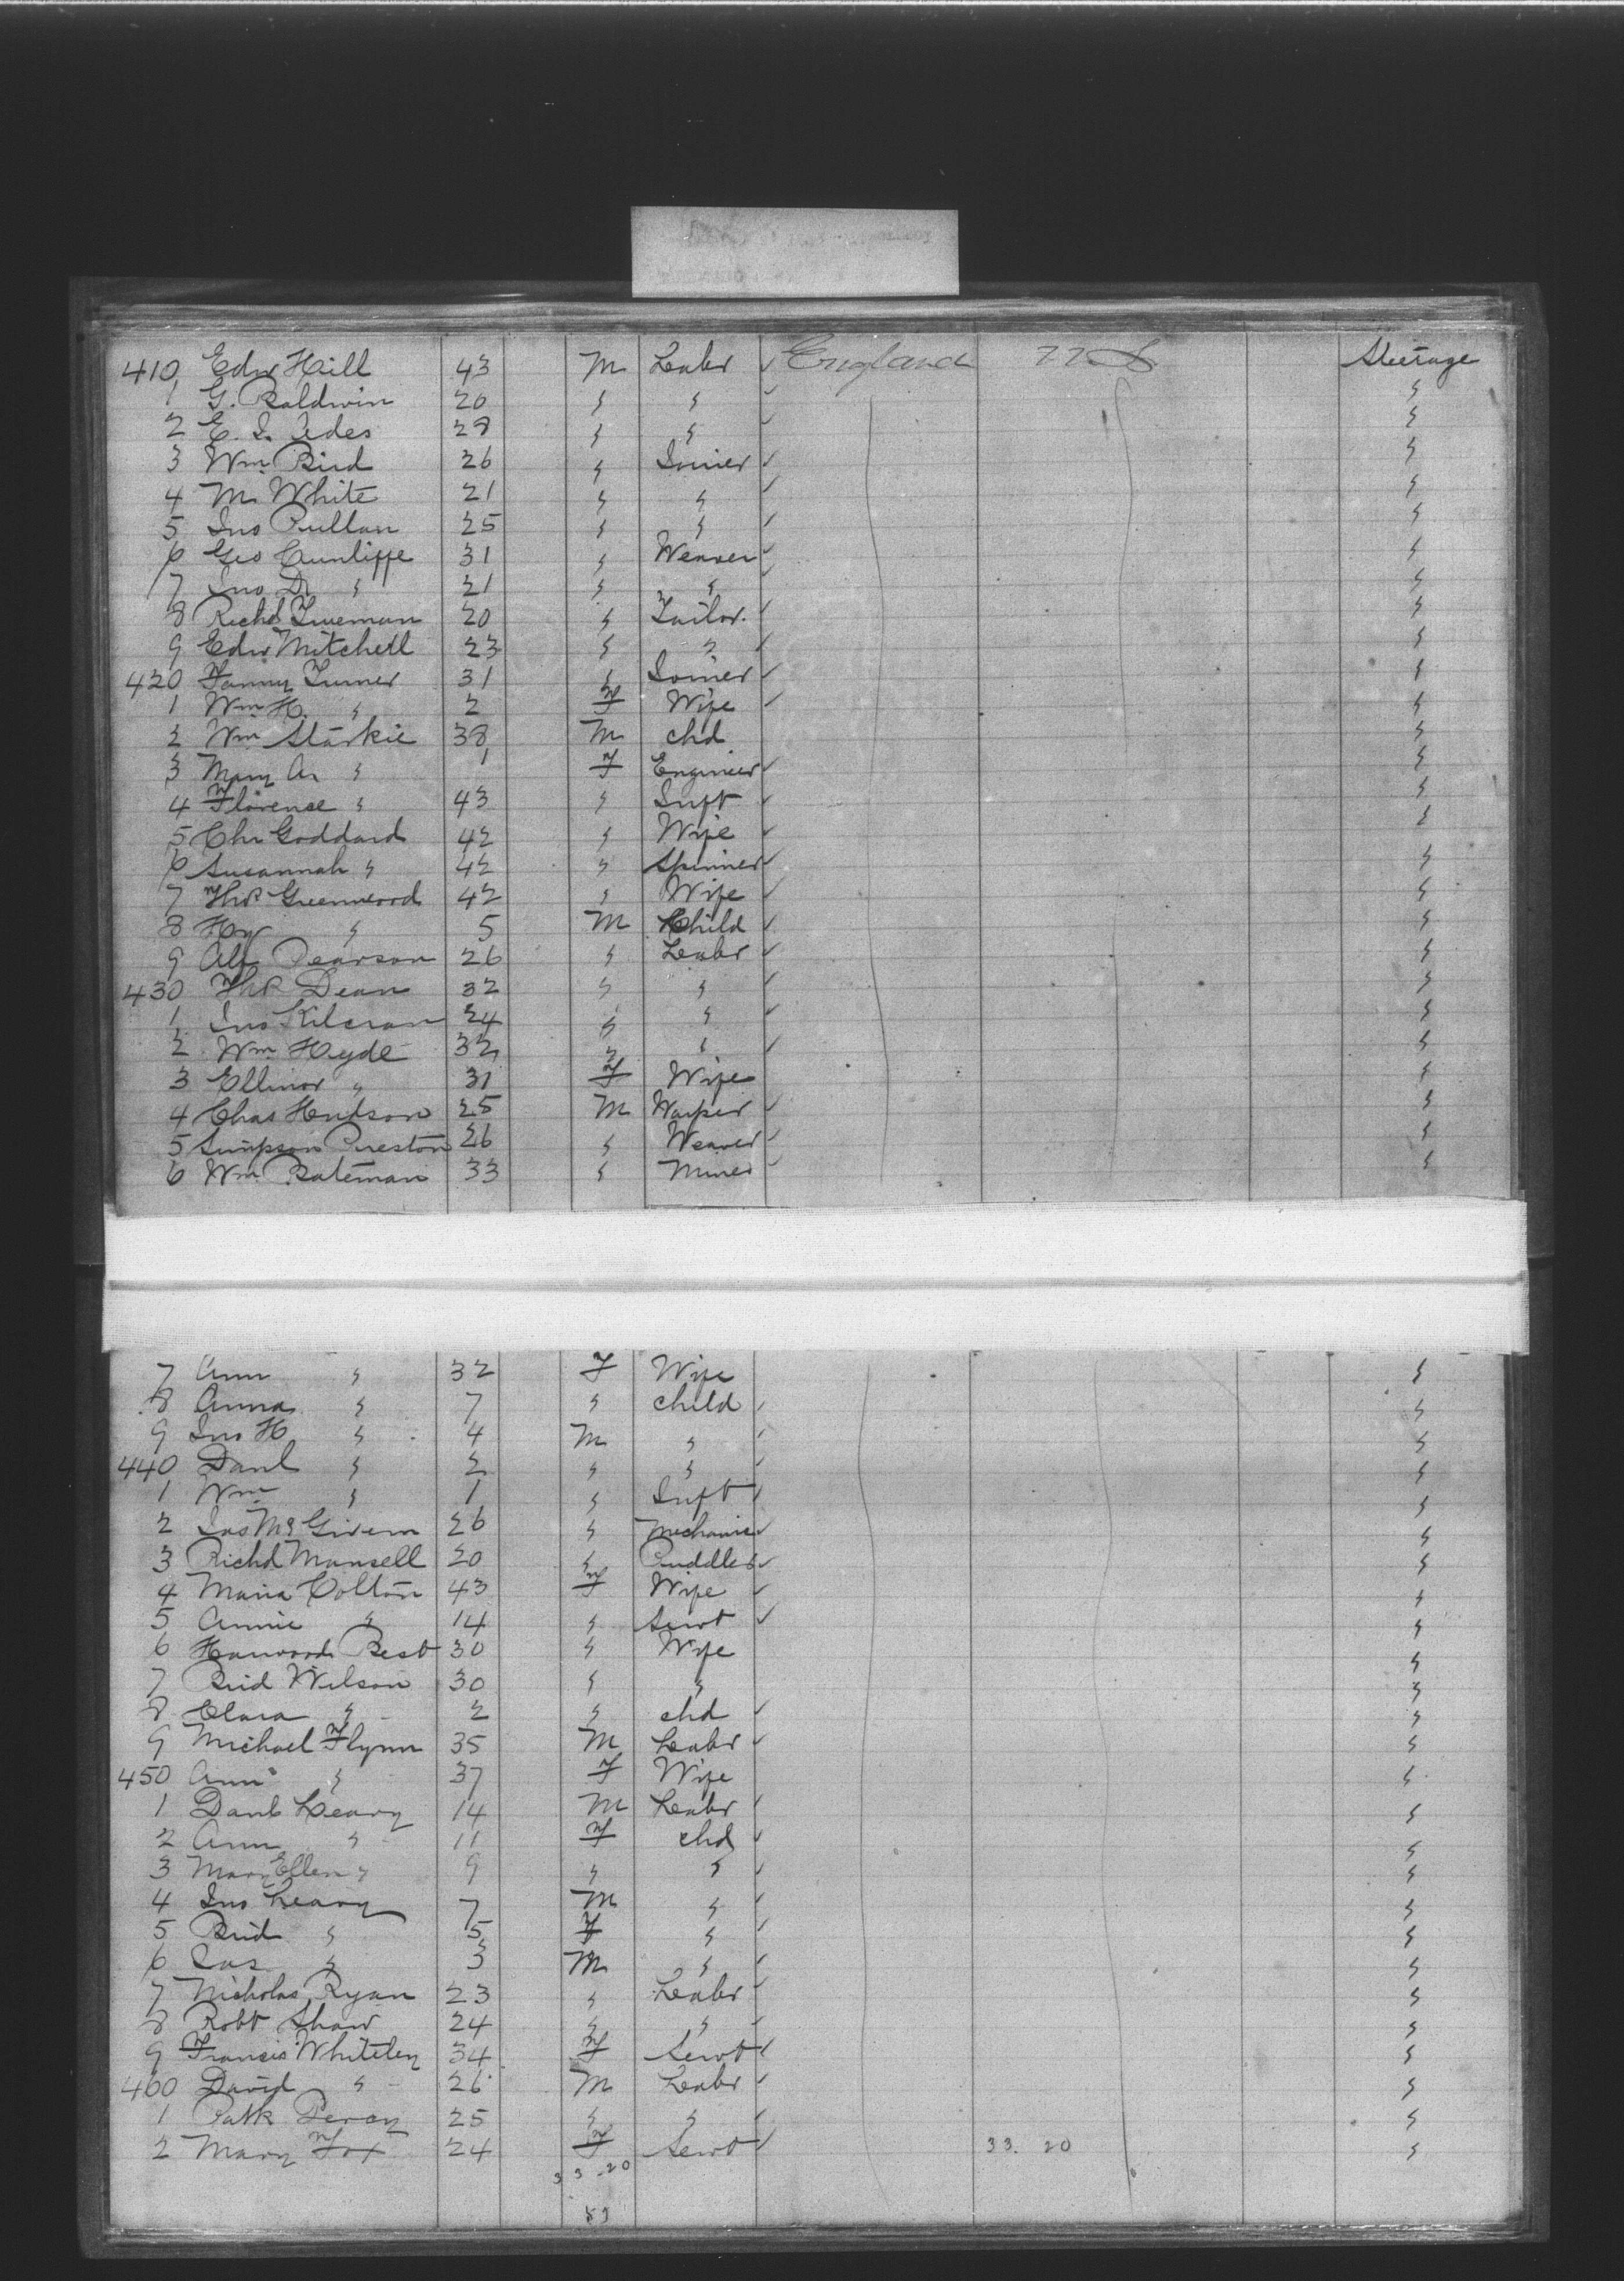 410 Edw Hill 43 M Labr ✓ England U S Steerage
1 G. Baldwin 20 " " ✓ "
2 E. J. Ades 28 " " ✓ "
3 Wm Bird 26 " Joiner ✓ "
4 M. White 21 " " ✓ "
5 Jno Pullan 25 " " ✓ "
6 Geo Cunliffe 31 " Weaver ✓ "
7 Jno D. " 21 " " ✓ "
8 Richd Trueman 20 " Tailor. ✓ "
9 Edw Mitchell 23 " " ✓ "
420 Fanny Turner 31 " Joiner ✓ "
1 Wm H. " 2 F Wife ✓ "
2 Wm Starkie 38 M chd "
3 Mary A. " 1 F Engineer ✓ "
4 Florence " 43 " Inft ✓ "
5 Chr Goddard 42 " Wife ✓ "
6 Susannah " 42 " Spinner ✓ "
7 Thos Greenwood 42 " Wife ✓ "
8 Hy " 5 M Child ✓ "
9 Alf Pearson 26 " Labr ✓ "
430 Thos Dean 32 " " ✓ "
1 Jno Kilcran 24 " " ✓ "
2 Wm Hyde 32 " " ✓ "
3 Ellinor " 31 F Wife "
4 Chas Hudson 25 M Warper ✓ "
5 Simpson Preston 26 " Weaver ✓ "
6 Wm Bateman 33 " Miner ✓ "
7 Ann " 32 F Wife "
8 Anna " 7 " child ✓ "
9 Jno H " 4 M " ✓ "
440 Danl " 2 " " ✓ "
1 Wm " 1 " Inft ✓ "
2 Jas McGivern 26 " Mechanic ✓ "
3 Richd Mansell 20 " Puddler ✓ "
4 Maria Colton 43 F Wife ✓ "
5 Annie " 14 " Servt ✓ "
6 Harwood Best 30 " Wife "
7 Brid Wilson 30 " " "
8 Clara " 2 " chd ✓ "
9 Michael Flynn 35 M Labr ✓ "
450 Ann " 37 F Wife "
1 Danl Leary 14 M Labr ✓ "
2 Ann " 11 F chd ✓ "
3 Mary Ellen " 9 " " ✓ "
4 Jno Leary 7 M " ✓ "
5 Brid " 5 F " ✓ "
6 Jas " 3 M " ✓ "
7 Nicholas Ryan 23 " Labr ✓ "
8 Robt Shaw 24 " " ✓ "
9 Francis Whiteley 34 F Servt ✓ "
460 David " 26 M Labr ✓ "
1 Patk Percy 25 " " ✓ "
2 Mary Fox 24 F Servt ✓ 33. 20 "
33-20